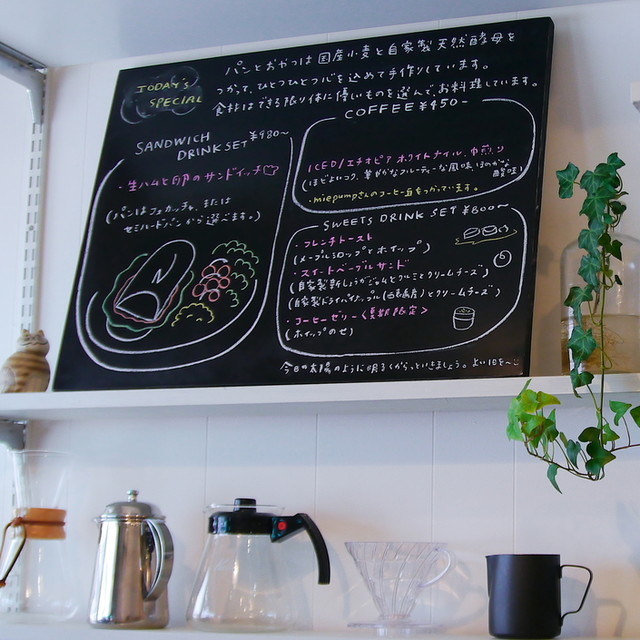 TODAY'S
SPECIAL
パンとおやつは国産小麦と自家製天然酵母を
つかって、ひとつひとつ心を込めて手作りしています。
食材はできる限り体に優しいものを選んでお料理しています。
SANDWICH
DRINK SET ¥980~
・生ハムと卵のサンドイッチ
(パンはフォカッチャ、または
セミハードパンから選べます。)
COFFEE ¥450-
ICED/エチオピア ホワイトナイル 中煎り
(ほどよいコク、華やかなフルーティーな風味、ほのかな
酸味)
・miepumpさんのコーヒー豆をつかっています。
SWEETS DRINK SET ¥800~
・フレンチトースト
(メープルシロップとホイップ)
・スイートベーグルサンド
(自家製新しょうがジャムとクルミとクリームチーズ)
(自家製ドライパイナップル とクリームチーズ)
・コーヒーゼリー<夏期限定>
(ホイップのせ)
今日の太陽のように明るくからっといきましょう。よい1日を~